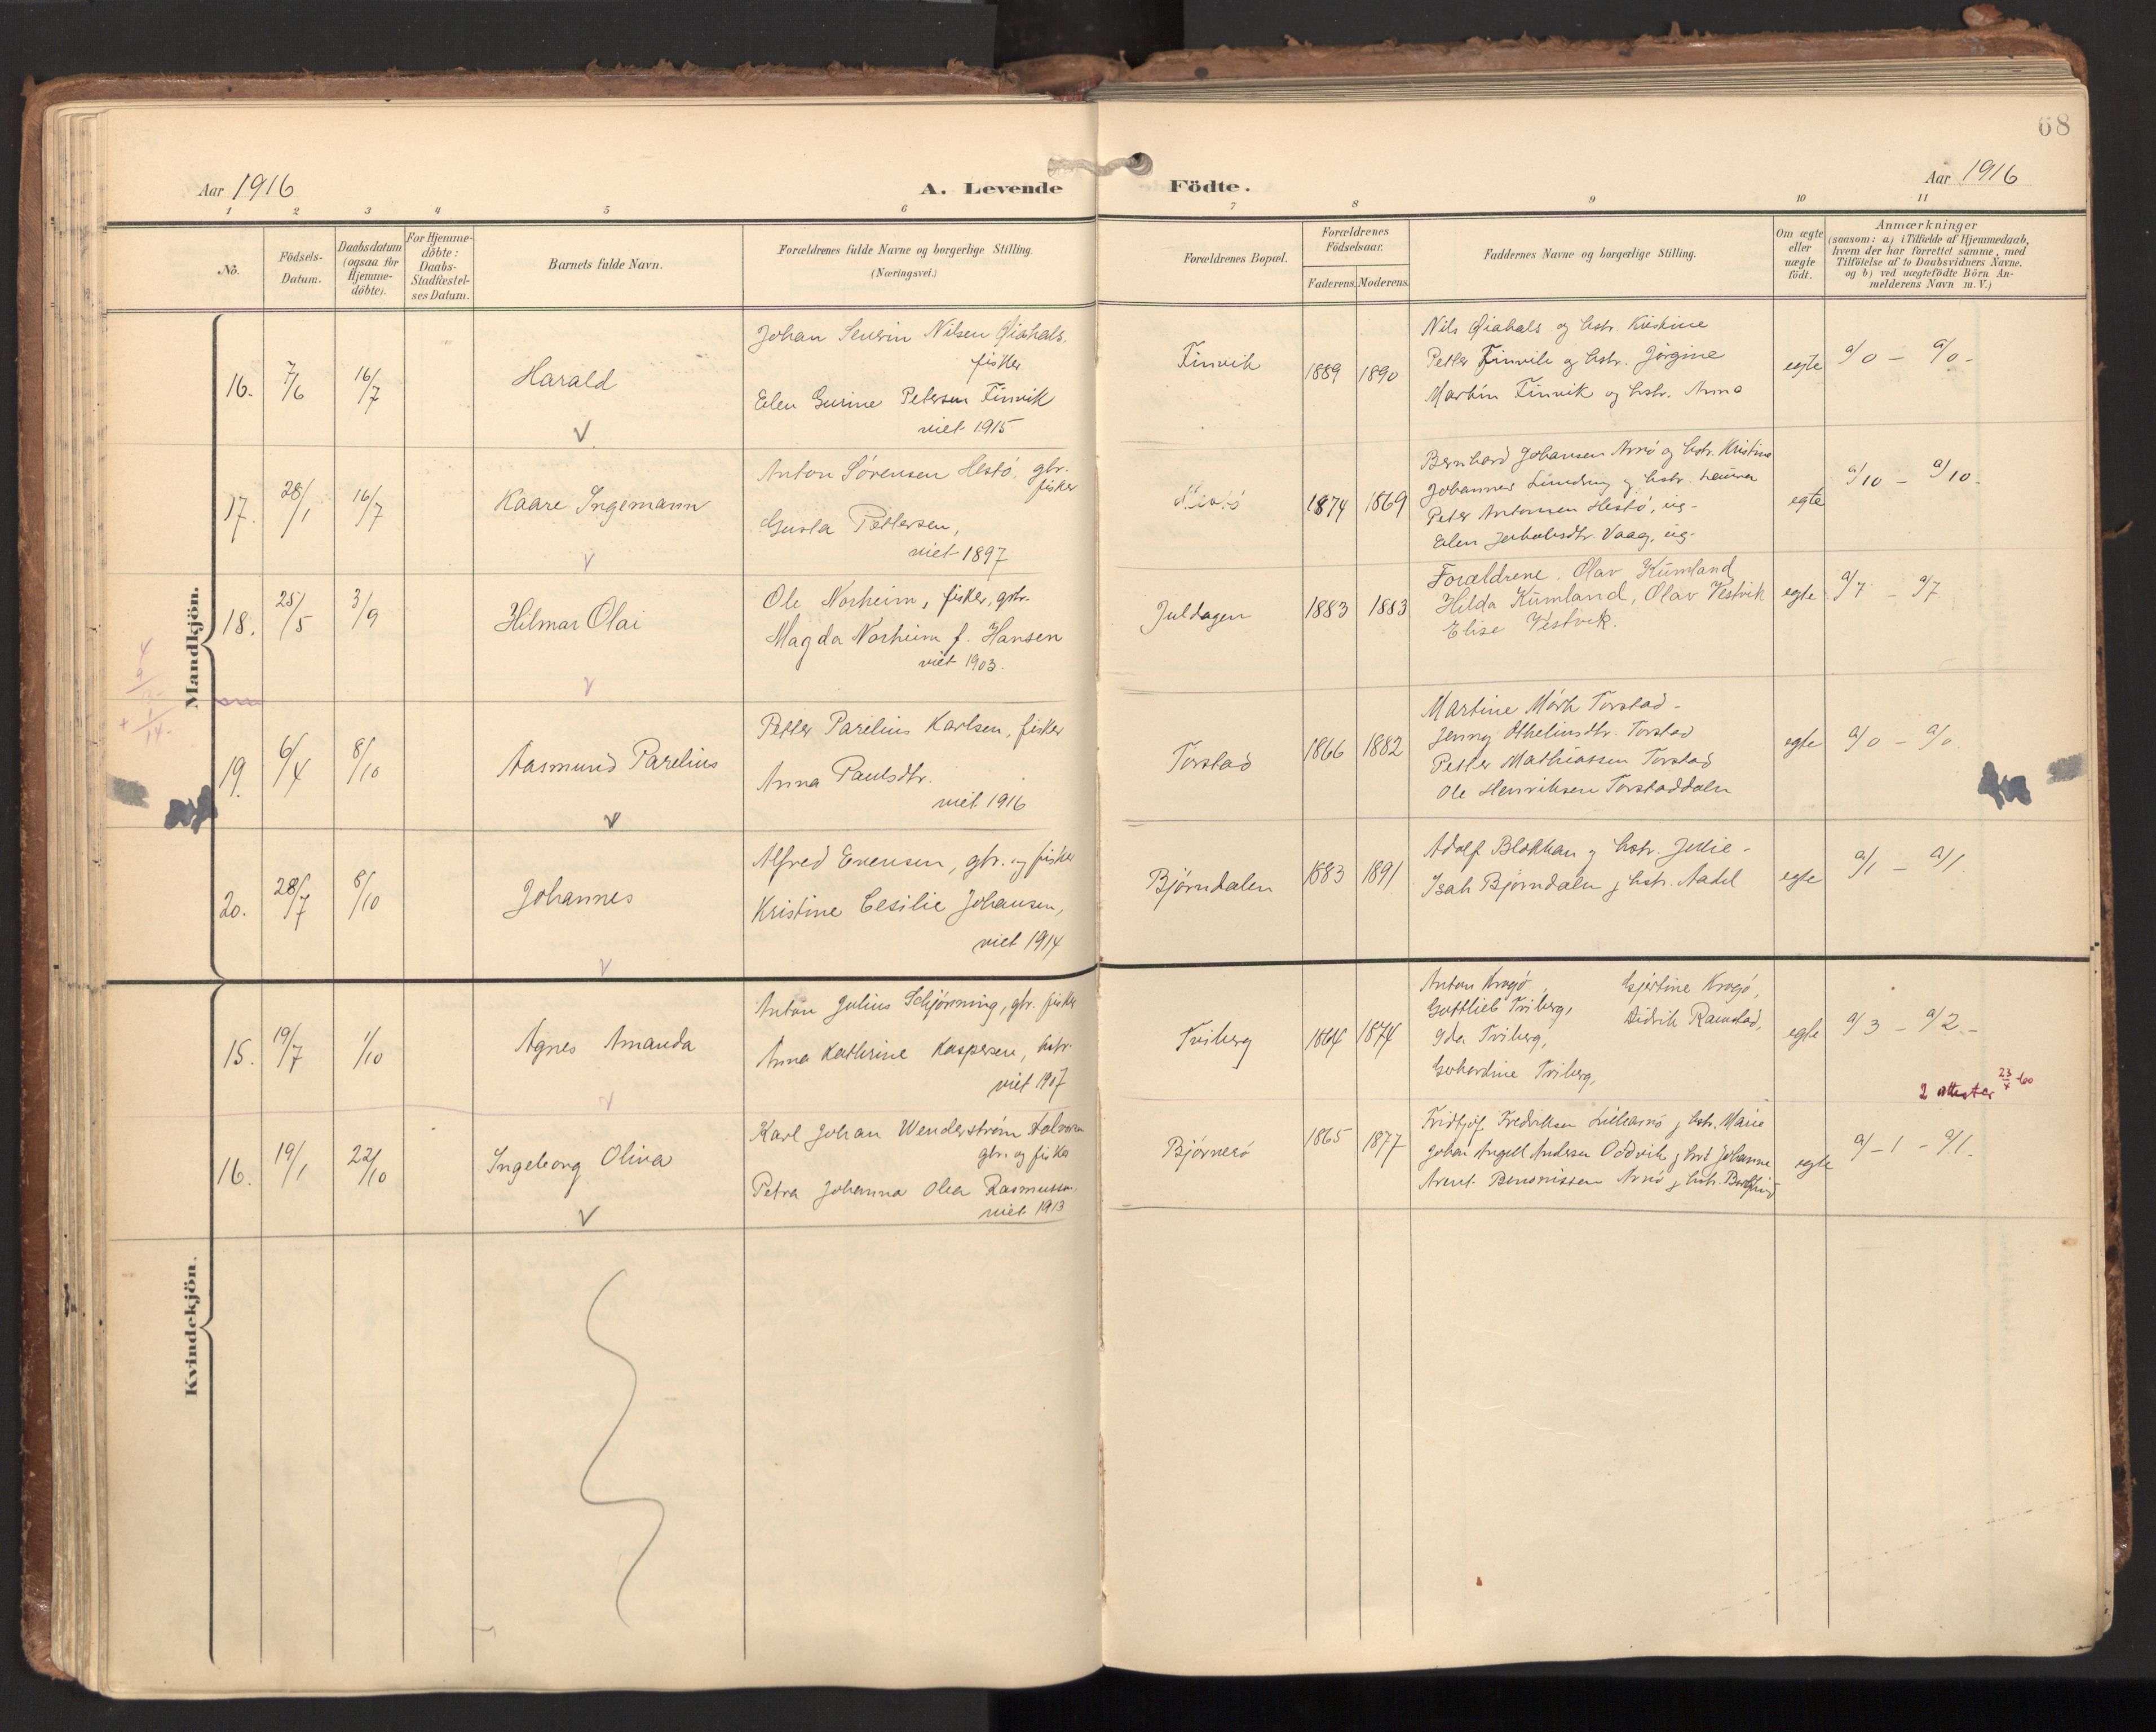 68
Aar 1916
A. Levende Födte.
Aar 1916
1 2 3 4 5 6 7 8 9 10 11
No.
Födsels-
Datum.
Daabsdatum
(ogsaa for
Hjemme-
döbte).
For Hjemme-
döbte:
Daabs-
Stadfæstel-
ses Datum.
Barnets fulde Navn.
Forældrenes fulde Navne og borgerlige Stilling.
(Næringsvei.)
Forældrenes Bopæl.
Forældrenes
Födselsaar.
Faderens. Moderens.
Faddernes Navne og borgerlige Stilling.
Om ægte
eller
uægte
födt.
Anmærkninger
(saasom: a) i Tilfælde af Hjemmedaab,
hvem der har forrettet samme, med
Tilföielse af to Daabsvidners Navne.
og b) ved uægtefödte Börn An-
melderens Navn m. V.)
Mandkjön.
16. 7/6 16/7 Harald
Johan Senrin Nilsen
fisker
Elen Gurine Petersen Finvik
viet 1915
Finvik 1889 1890
Nils og hstr. Kristine
Petter Finvik og hstr. Jörgine
Martin Finvik og hstr. Anna
egte a/0 - a/0 -
17. 28/1 16/7 Kaare Ingemann
Anton Sörensen Hestö, gbr.
fisker
Gusta Pettersen,
viet 1897
Hestö 1874 1869
Bernhard Johansen Arnö og hstr. Kristine
Johannes hstr.
Peter Antonsen Hestö, ug-
Elen Jakobsdtr. Vaag, ug-
egte a/10 - a/10 -
18. 25/5 3/9 Hilmar Olai
Ole Norheim, fisker, gbr.
Magda Norheim f. Hansen
viet 1903.
Juldagen 1883 1883
Forældrene. Olav Kumland
Hilda Kumland, Olav Vestvik
Elise Vestvik.
egte a/7 - a/7
19. 6/4 8/10 Aasmund Parelius
Petter Parelius Karlsen, fisker
Anna Paulsdtr.
viet 1916
Torstad 1866 1882
Martine Mörk Torstad -
Jenny Othelinsdtr. Torstad
Petter Mathiassen Torstad
Ole Henriksen Torstaddalen
egte a/0 - a/0
20. 28/7 8/10 Johannes
Alfred Evensen, gbr. og fisker
Kristine Cesilie Johansen,
viet 1914
Björndalen 1883 1891
Adolf Blokhan og hstr. Julie -
Isak Björndalen og hstr.
egte a/1 - a/1
Kvindekjön.
15. 19/7 1/10 Agnes Amanda
Anton Julius Schjönning, gbr. fisker
Anna Kathrine Kaspersen, hstr.
viet 1907
Triberg 1864 1874
Anton Kragö, Hjertine Kragö,
Gottlieb Triberg, Didrik Ramstad,
Ida Triberg,
Gerhardine Triberg,
egte a/3 - a/2 -
2 attester 23/4 60
16. 19/1 22/10 Ingeborg Oliva
Karl Johan Wenderström Halvorsen
gbr. og fisker
Petra Johanna Olea Rasmussen
viet 1913
Björnerö 1865 1877
Fridtjof Fredriksen og hstr. Marie
Johan Angell Andersen Oddvik og hstr Johanne
Arent Benonissen Arnö og hstr.
egte a/-1 - a/1.